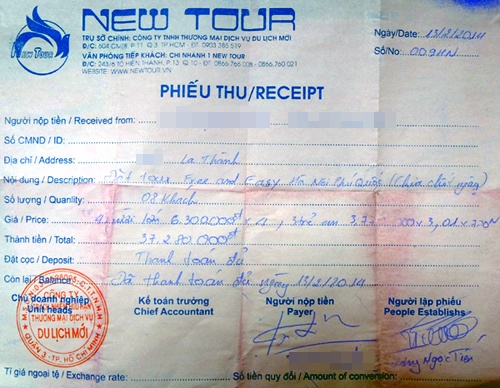 NEW TOUR
TRỤ SỞ CHÍNH: CÔNG TY TNHH THƯƠNG MẠI DỊCH VỤ DU LỊCH MỚI
Đ/C: 604 CMT8, P.11, Q.3, TP.HCM - ĐT: 0903 385 519
VĂN PHÒNG TIẾP KHÁCH: CHI NHÁNH 1 NEW TOUR
WEBSITE: WWW.NEWTOUR.VN
NEW TOUR
Ngày/Date: 13/2/2014
Số/No:
PHIẾU THU/RECEIPT
Người nộp tiền / Received from:
Số CMND / ID:
Địa chỉ / Address: La Thành
Nội dung / Description: Đặt tour Free and Easy Hà Nội Phú Quốc (Chưa chốt ngày)
Số lượng / Quantity: 08 khách
Giá / Price: người lớn 6.300.000đ x 4, trẻ em
Thành tiền / Total: 37.280.000đ
Đặt cọc / Deposit: Thanh toán đủ
Còn lại / Balance: Đã thanh toán đủ ngày 13/2/2014
Chủ doanh nghiệp Kế toán trưởng Người nộp tiền Người lập phiếu
Unit heads Chief Accountant Payer People Establishs
CÔNG TY
THƯƠNG MẠI DỊCH VỤ
DU LỊCH MỚI
QUẬN 3 - TP. HỒ CHÍ MINH
Ngọc Tiên
Tỉ giá ngoại tệ / Exchange rate: Số tiền quy đổi / Amount of conversion: